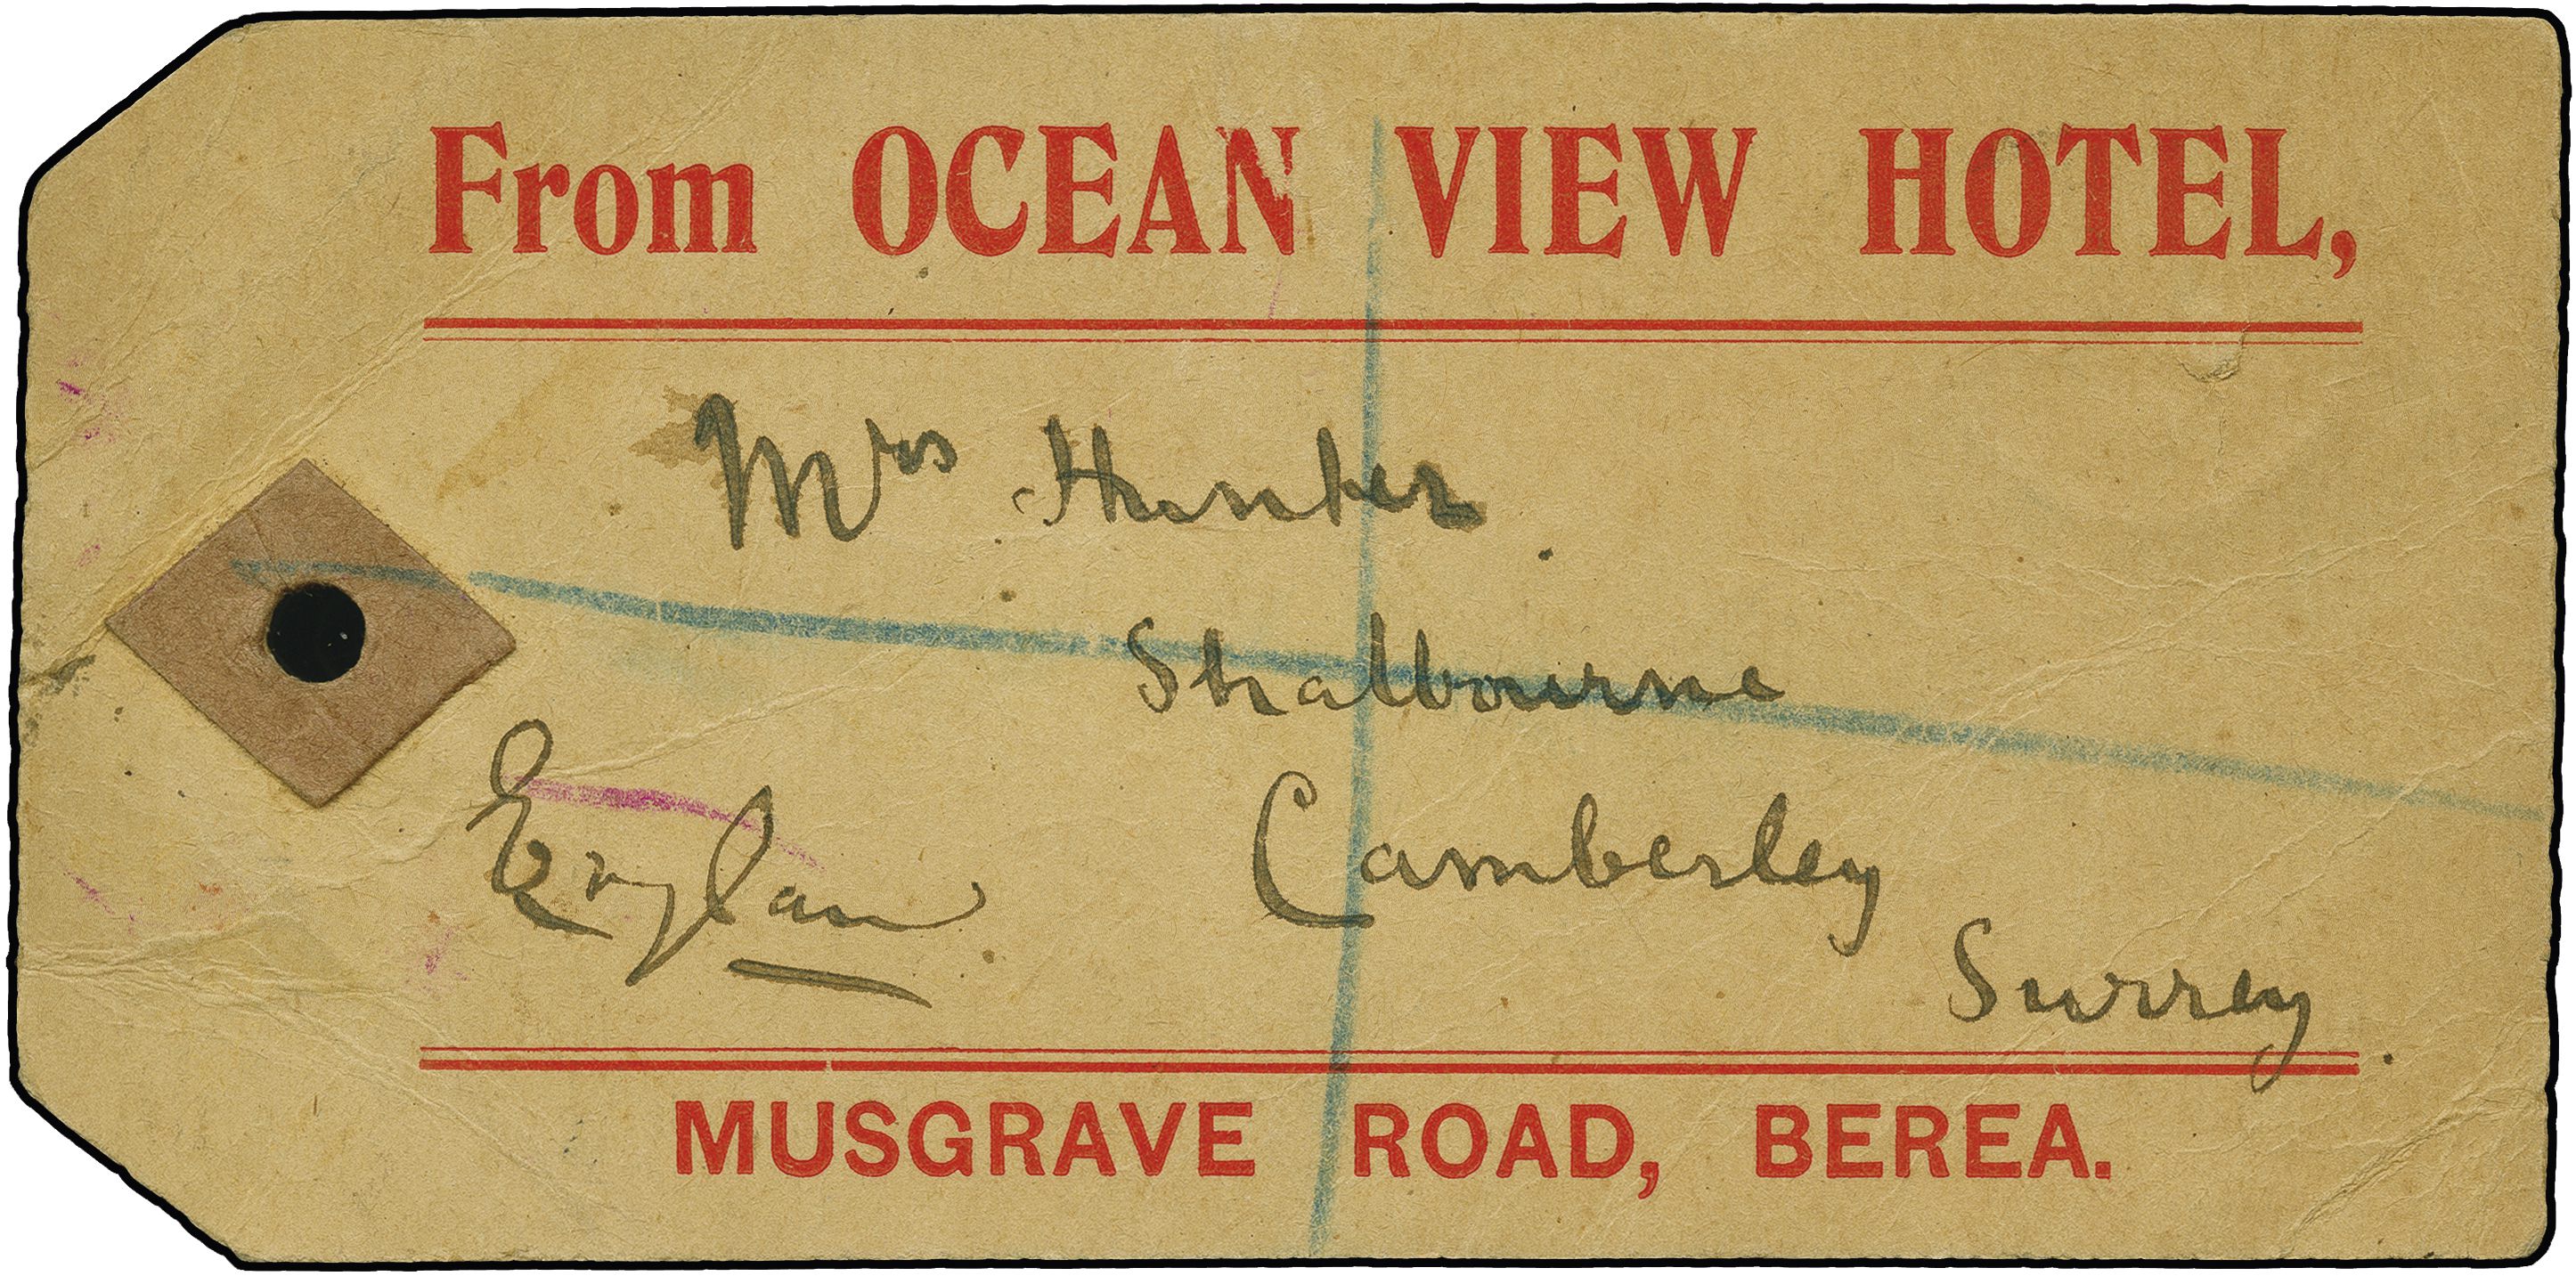 From OCEAN VIEW HOTEL,
Mrs Hunter.
Shalbourne
Camberley
Surrey.
England
MUSGRAVE ROAD, BEREA.